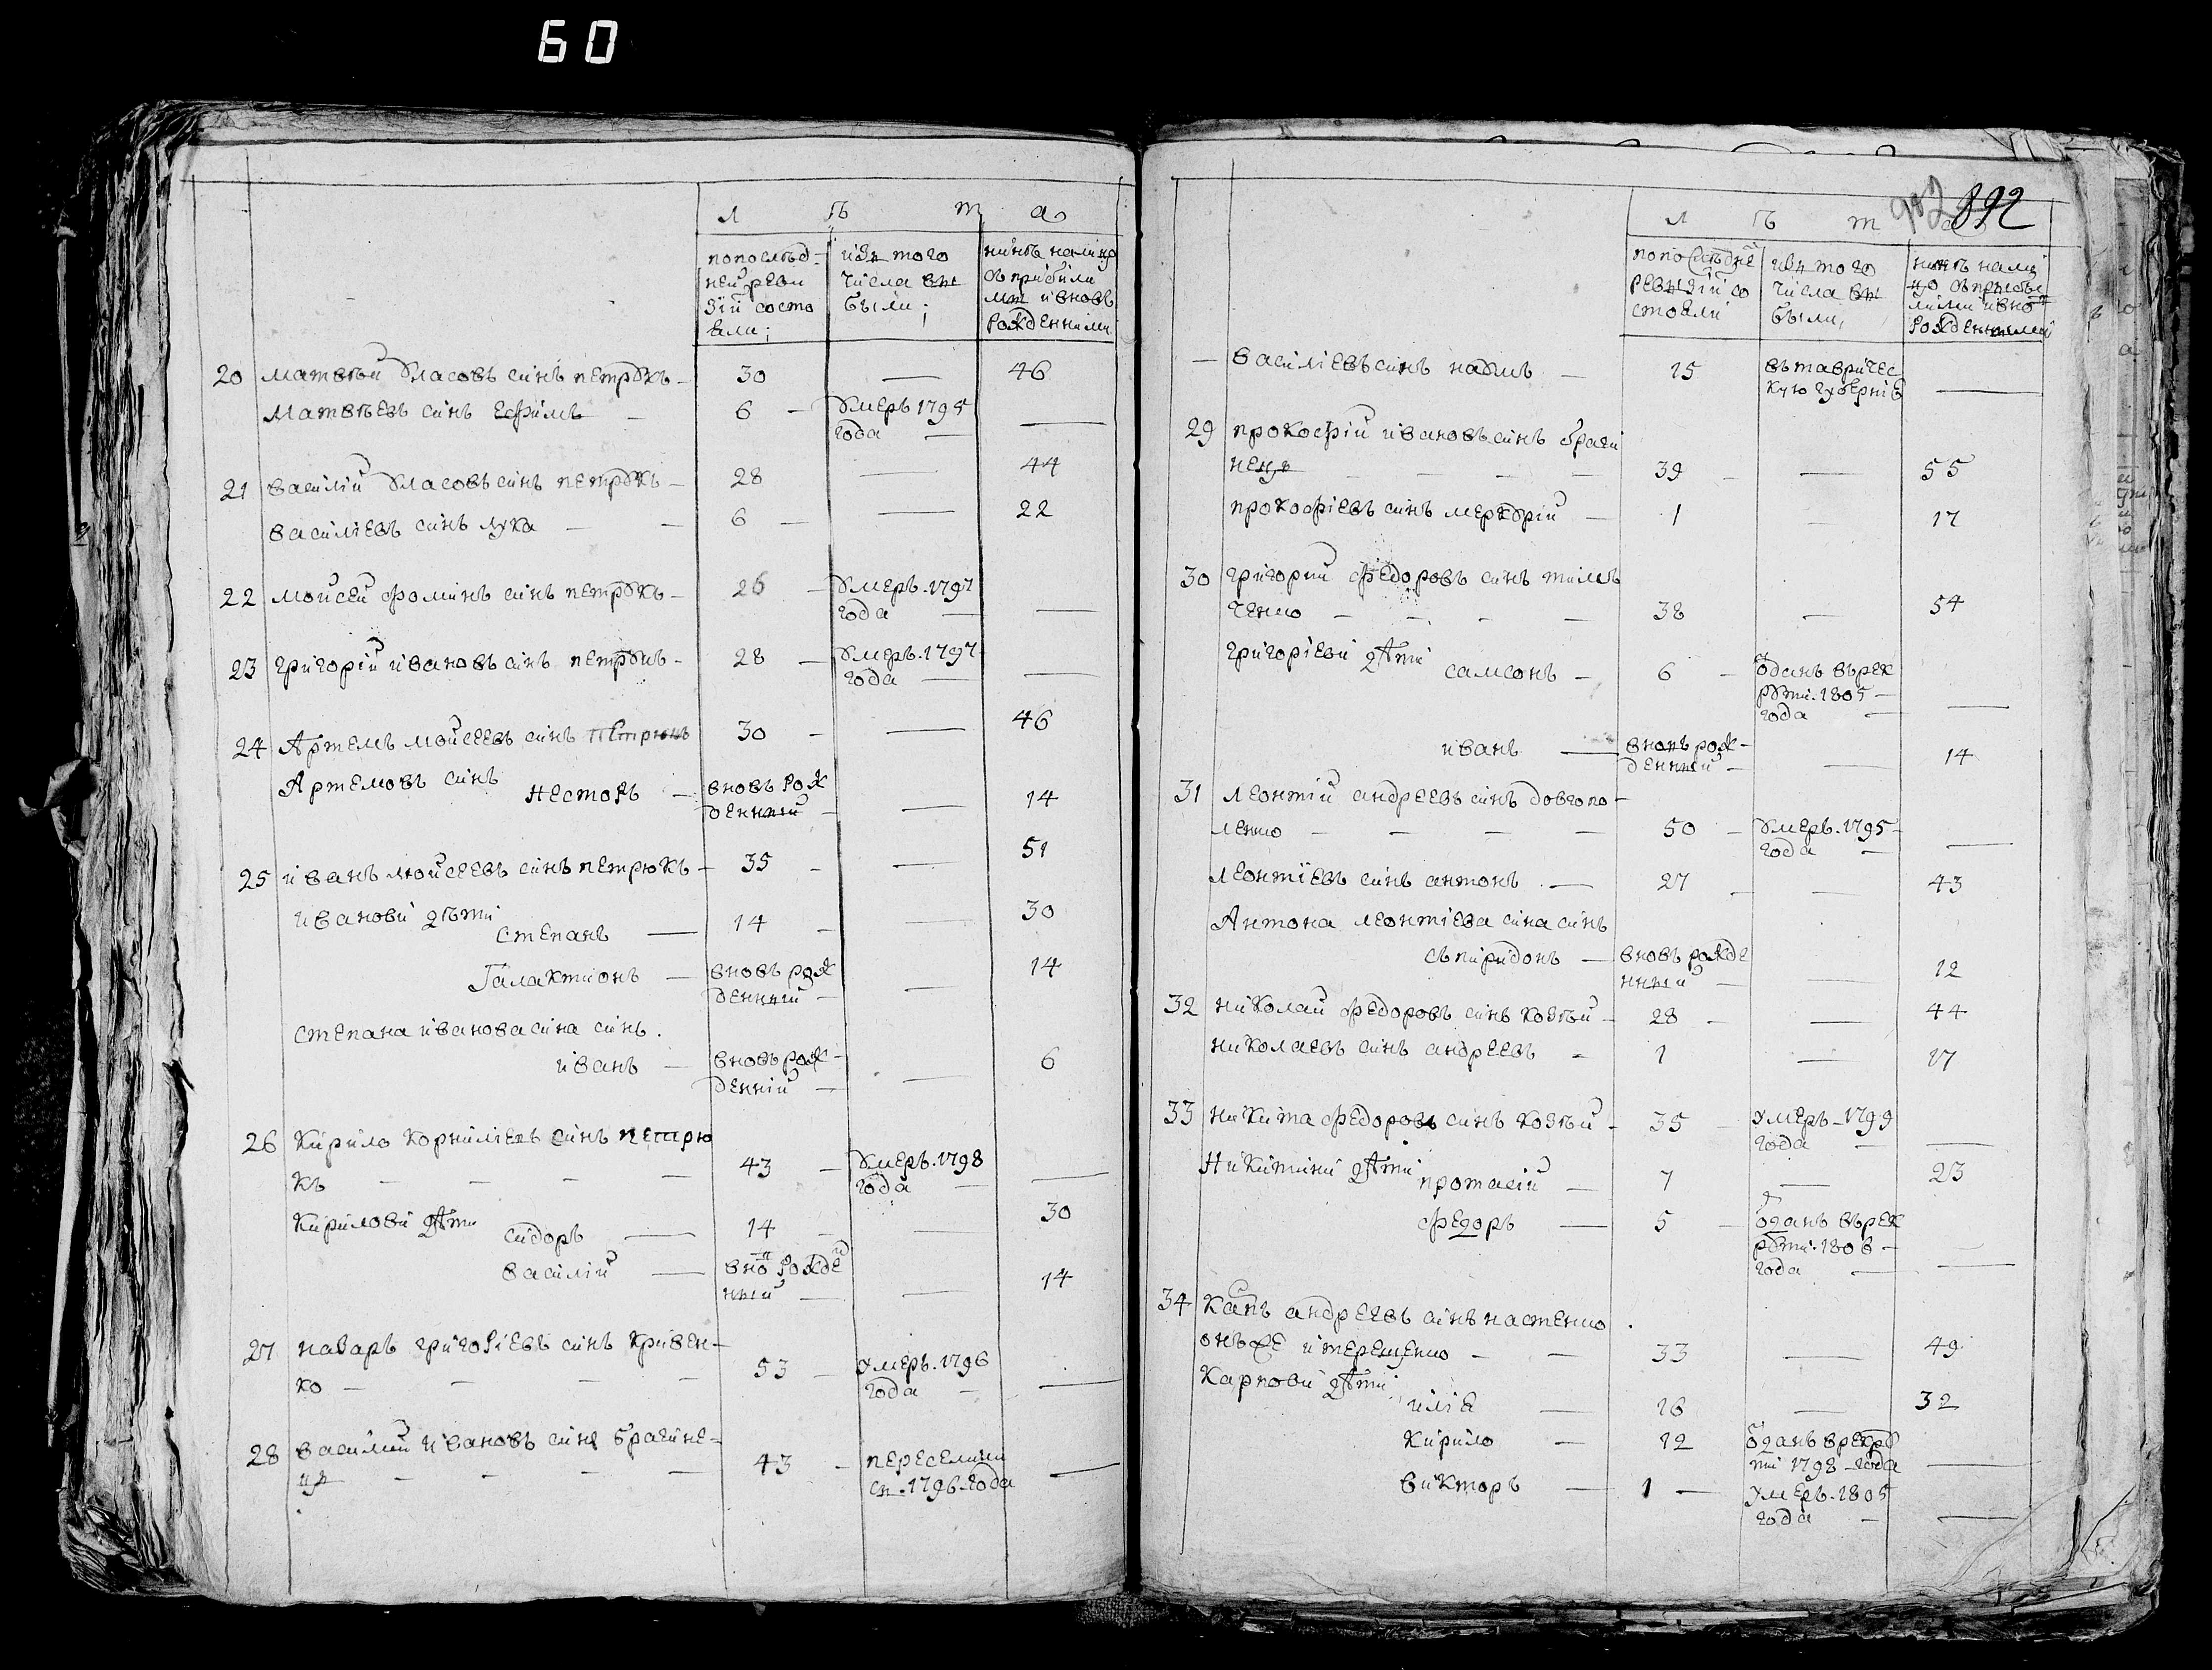 60
л ѣ т а
по послѣд-
ней реви
зїй состо
яли;
изъ того
числа вы
были;
нинѣ налицо
съ прибили
ми и вновь
рожденними
20 матвѣй власовъ синъ петрукъ — 30 — 46
матвѣевъ синъ ефимъ — 6 — умеръ 1795
года —
21 василїй власовъ синъ петрукъ — 28 — 44
василїевъ синъ лука — 6 — 22
22 мойсей фоминъ синъ петрукъ — 26 — умеръ. 1797
года —
23 григорїй ивановъ синъ петрукъ — 28 — умеръ. 1797
года —
24 Артемъ мойсеевъ синъ петрюкъ 30 — 46
Артемовъ синъ
несторъ — вновь рож
денный — 14
25 иванъ мойсеевъ синъ петрюкъ — 35 — 51
иванови дѣти
степанъ — 14 — 30
Галактионъ — вновь рож
денный — 14
степана иванова сина синъ.
иванъ — вновь рож-
деннїй — 6
26 Кирило корнилїевъ синъ петрю
къ — 43 — умеръ. 1798
года —
Кирилови дѣти
сидоръ — 14 — 30
василїй — вно рожде
ный — 14
27 назаръ григорїевъ синъ кривен-
ко — 53 — умеръ. 1796
года —
28 василий ивановъ синъ брагине-
цъ — 43 — переселили
сп. 1796 года —
902 892
л ѣ т
по послѣдне
ревизїй со
стояли
изъ того
числа вы
были,
нинѣ нали
цо съ прибы
лими и вно
рожденними
— василїевъ синъ наумъ — 15 въ тавричес
кую губернїю —
29 прокофїй ивановъ синъ браги
нецъ — 39 — 55
прокофїевъ синъ меркурїй — 1 — 17
30 григорий федоровъ синъ тимъ
ченко — 38 — 54
григорїеви дѣти самсонъ — 6 — отданъ въ рек
рути. 1805 —
года —
иванъ — вновь рож-
денный — 14
31 леонтїй андреевъ синъ довгопо-
ленко — 50 — умеръ. 1795 —
года —
леонтїевъ синъ антонъ. — 27 — 43
Антона леонтїева сина синъ
съпиридонъ — вновь рожде
нный — 12
32 николай федоровъ синъ козѣй — 28 — 44
николаевъ синъ андреевъ — 1 — 17
33 никита федоровъ синъ козѣй — 35 — умеръ — 1799
года —
Никитини дѣти протасїй — 7 — 23
федоръ — 5 — отданъ въ рек
рути. 1806 —
года —
34 Капъ андреевъ синъ настенко
онъ же и терещенко — 33 — 49
Карпови дѣти
илїа — 16 — 32
Кирило — 12 отданъ в рекру
ти 1798 года —
викторъ — 1 — умеръ. 1805
года —